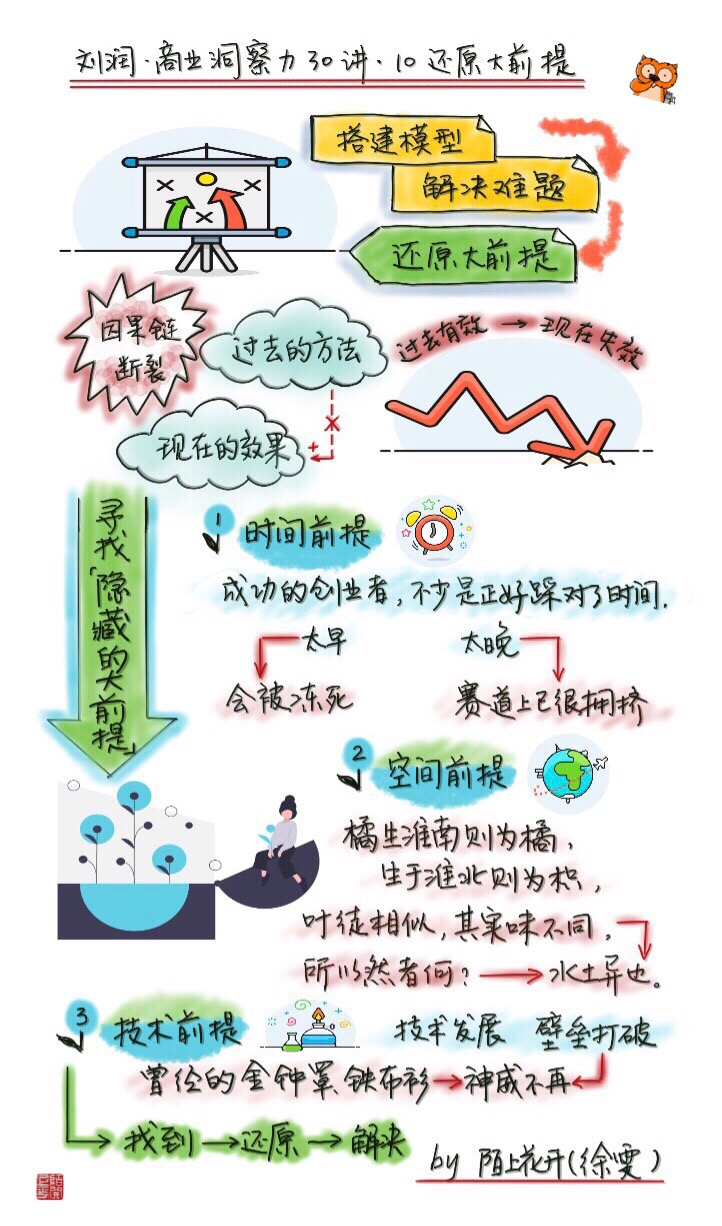 刘润·商业洞察力30讲·10还原大前提
搭建模型
解决难题
还原大前提
因果链
断裂
过去的方法
过去有效→现在失效
现在的效果
寻找「隐藏的大前提」
1 时间前提
成功的创业者,不少是正好踩对了时间.
太早
太晚
会被冻死
赛道上已很拥挤
2 空间前提
橘生淮南则为橘,
生于淮北则为枳,
叶徒相似,其实味不同,
所以然者何?→水土异也。
3 技术前提
技术发展 壁垒打破
曾经的金钟罩铁布衫→神威不再
找到→还原→解决
by 陌上花开(徐雯)